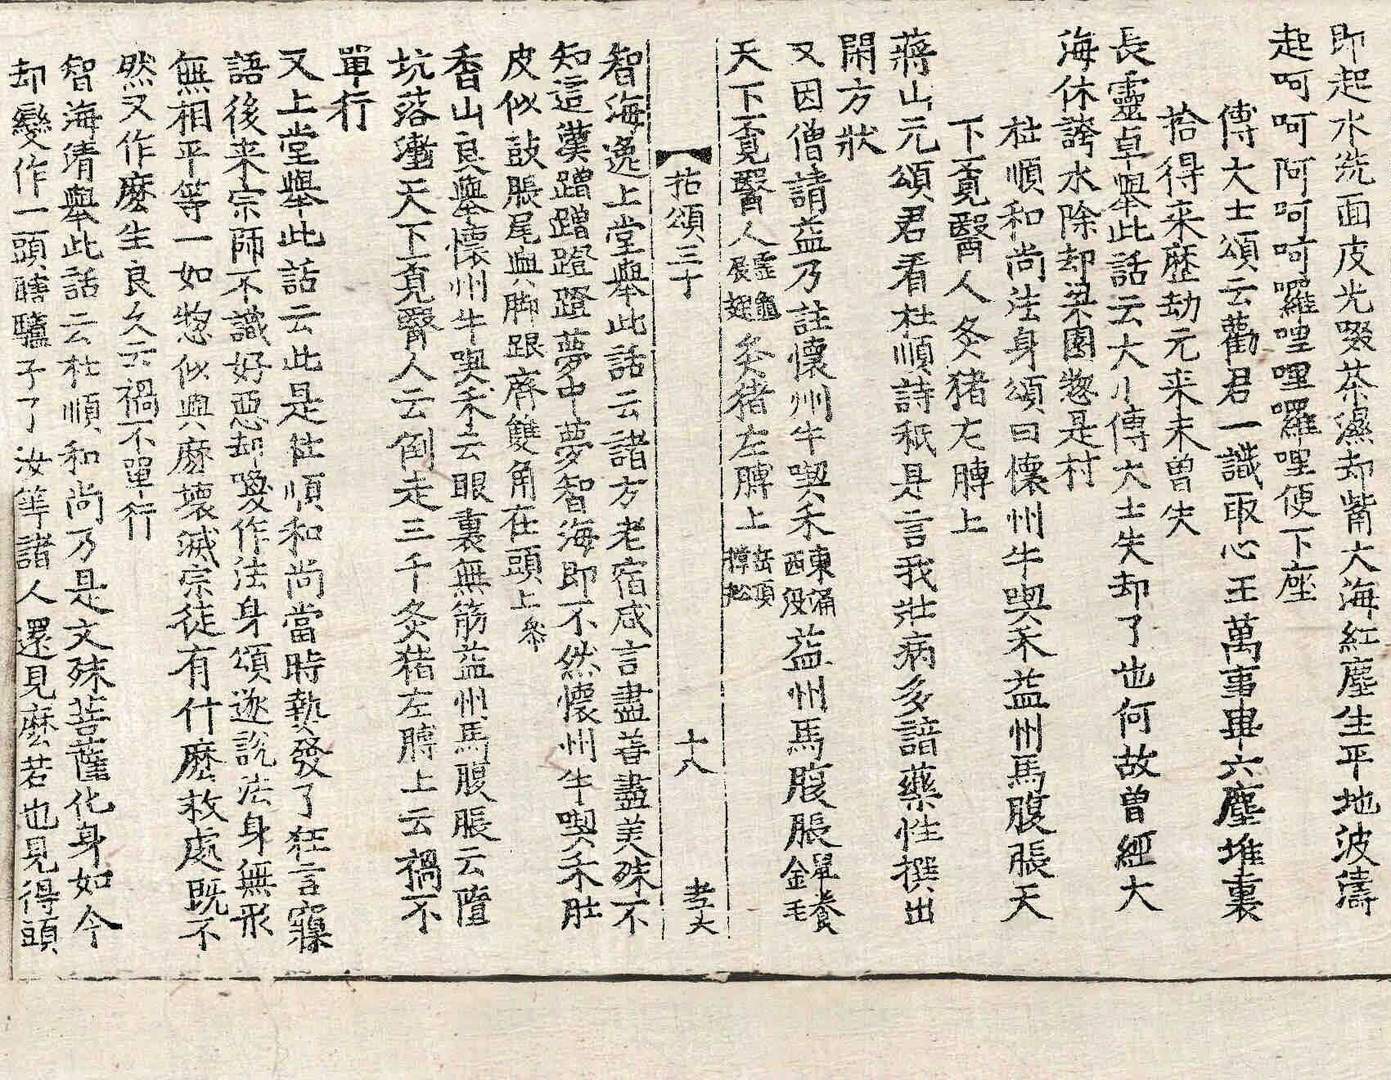 即起水洗面皮光啜茶濕却觜大海紅塵生平地波濤
起呵呵阿呵呵囉哩哩囉哩便下座
傅大士頌云勸君一識取心王萬事畢六塵堆裏
拾得来歷劫元来未曾失
長靈卓擧此話云大小傅大士失却了也何故曽經大
海休誇水除却梁園惣是村
杜順和尚法身頌曰懷州牛喫禾益州馬腹脹天
下覓醫人灸猪左膊上
蔣山元頌君看杜順詩秖是言我壯病多諳藥性撰出
閑方狀
又因僧請益乃註懷州牛喫禾東涌西没益州馬腹脹犀養金毛
天下覓醫人靈龜展翅灸猪左膊上岳頂撑松
拈頌三十 十八 孝大
智海逸上堂擧此話云諸方老宿咸言盡善盡美殊不
知這漢蹭蹭蹬蹬夢中夢智海即不然懷州牛喫禾肚
皮似鼓脹尾與脚跟齊雙角在頭上叅
香山良擧懷州牛喫禾云眼裏無筋益州馬腹脹云墮
坑落壍天下覓醫人云倒走三千灸猪左膊上云禍不
單行
又上堂擧此話云此是杜順和尚當時熱發了狂言寱
語後来宗師不識好惡却喚作法身頌遂說法身無形
無相平等一如惣似與麽壞滅宗徒有什麽救處既不
然又作麽生良久云禍不單行
智海清擧此話云杜順和尚乃是文殊菩薩化身如今
却變作一頭瞎驢子了汝等諸人還見麽若也見得頭